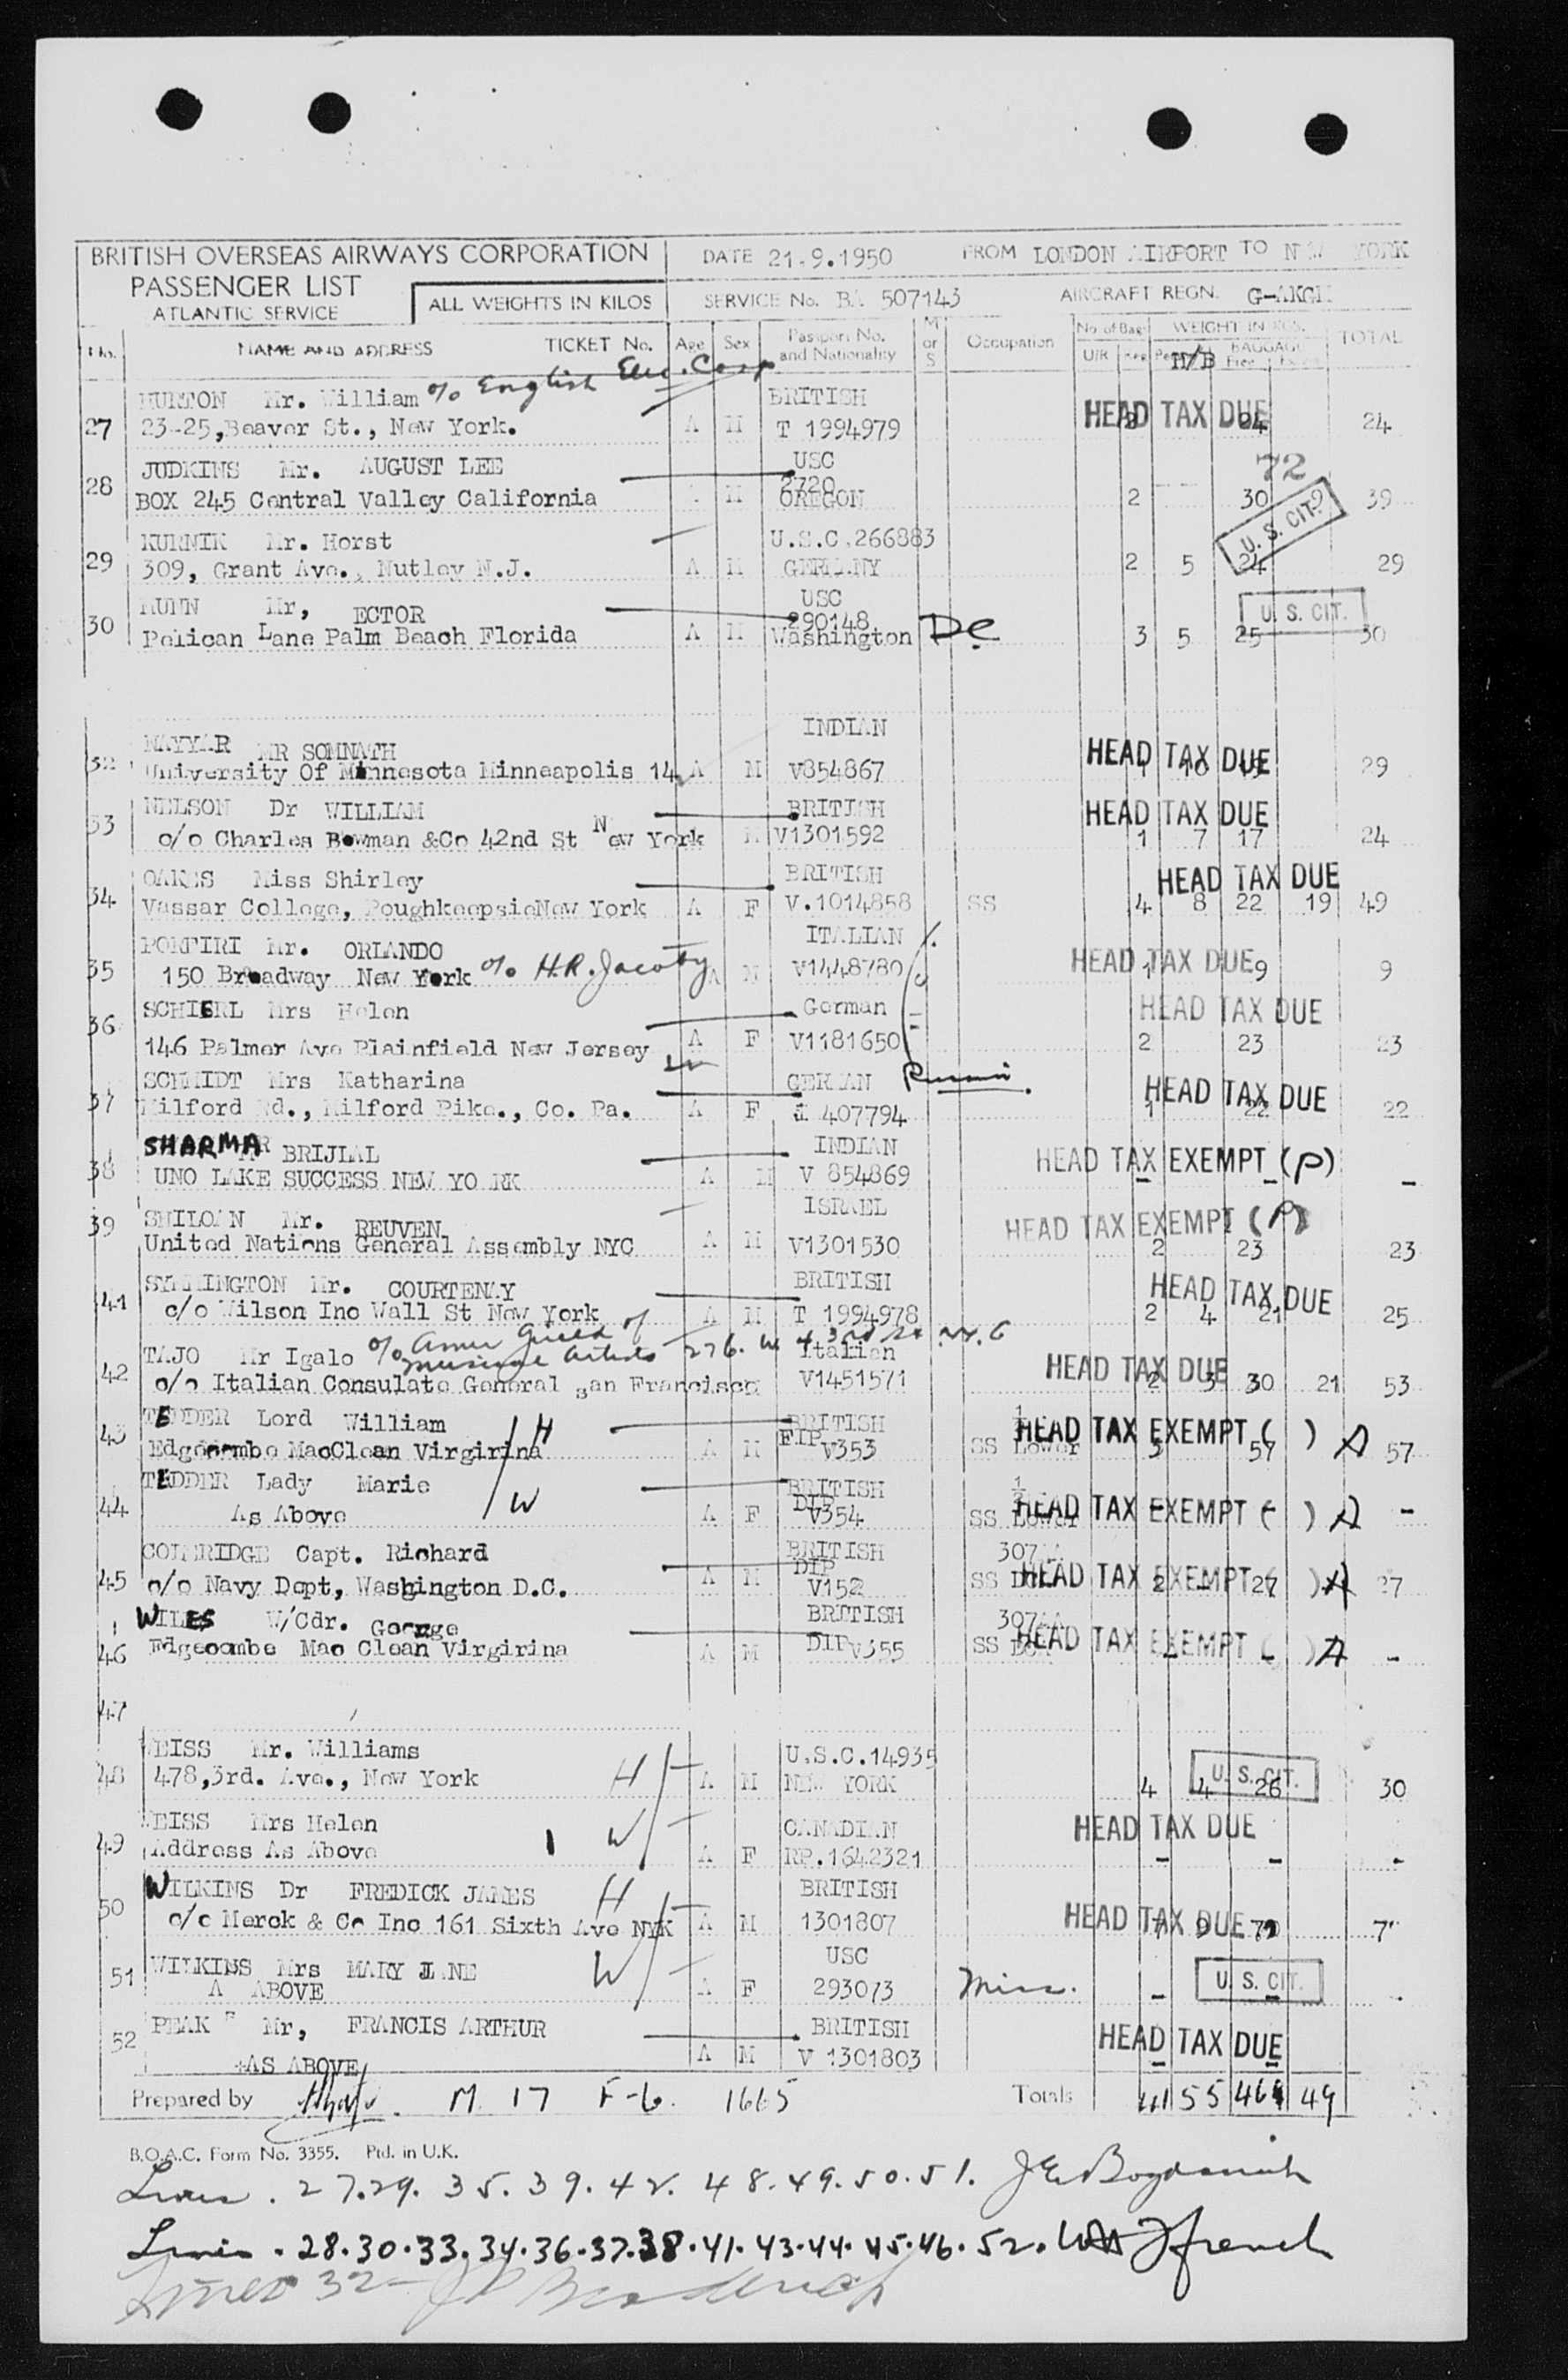 BRITISH OVERSEAS AIRWAYS CORPORATION DATE 21.9.1950 FROM LONDON AIRPORT TO YORK
PASSENGER LIST
ATLANTIC SERVICE ALL WEIGHTS IN KILOS SERVICE No. BA 507143 AIRCRAFT REGN.
No. NAME AND ADDRESS TICKET No. Age Sex Passport No. and Nationality M or S Occupation No. of Bags U/R Reg WEIGHT IN KOS. H/B BAGGAGE Free TOTAL
Mr. William % English Elec. Corp BRITISH
27 23-25, Beaver St., New York. A M T 1994979 HEAD TAX DUE 24 24
JUDKINS Mr. AUGUST LEE USC 72
28 BOX 245 Central Valley California M 2720 OREGON 2 30 9 39
U. S. CIT.
KURNIK Mr. Horst U.S.C.266883
29 309, Grant Ave., Nutley N.J. A M GERMANY 2 5 24 29
Mr, ECTOR USC U. S. CIT.
30 Pelican Lane Palm Beach Florida A M 290148 Washington DC 3 5 25 30
NAYYAR MR SOMNATH INDIAN
32 University Of Minnesota Minneapolis 14 A M V854867 HEAD TAX DUE 1 10 19 29
NELSON Dr WILLIAM BRITISH HEAD TAX DUE
33 c/o Charles Bowman &Co 42nd St New York M V1301592 1 7 17 24
OAKES Miss Shirley BRITISH HEAD TAX DUE
34 Vassar College, PoughkeepsieNew York A F V.1014858 SS 4 8 22 19 49
Mr. ORLANDO ITALIAN
35 150 Broadway New York % H.R. Jacoby A M V1448780 HEAD TAX DUE 1 9 9
SCHIERL Mrs Helen German HEAD TAX DUE
36 146 Palmer Ave Plainfield New Jersey A F V1181650 2 23 23
SCHMIDT Mrs Katharina GERMAN
37 Milford Rd., Milford Pike., Co. Pa. A F 407794 HEAD TAX DUE 1 22 22
SHARMA MR BRIJLAL INDIAN HEAD TAX EXEMPT (P)
38 UNO LAKE SUCCESS NEW YO RK A M V 854869 - - -
SHILOAN Mr. REUVEN ISRAEL HEAD TAX EXEMPT (P)
39 United Nations General Assembly NYC A M V1301530 2 23 23
SYMMINGTON Mr. COURTENAY BRITISH HEAD TAX DUE
41 c/o Wilson Inc Wall St New York A M T 1994978 2 4 21 25
TAJO Mr Igalo % Amer Guild of musical Artists 276. W 43rd St N.Y.C Italian
42 c/o Italian Consulate General San Francisco V1451571 HEAD TAX DUE 2 3 30 21 53
TEDDER Lord William H BRITISH HEAD TAX EXEMPT ( ) A
43 MacClean Virgirina A M DIP V353 SS Lower 3 57 57
TEDDER Lady Marie BRITISH
44 As Above W A F DIP V354 SS Lower HEAD TAX EXEMPT ( ) A -
COLERIDGE Capt. Richard BRITISH 307AA
45 c/o Navy Dept, Washington D.C. A M DIP V152 SS HEAD TAX EXEMPT ( ) A 2 27 27
WILES W/Cdr. George BRITISH 307AA
46 Edgecombe Mac Clean Virgirina A M DIP V355 SS HEAD TAX EXEMPT ( ) A -
47
WEISS Mr. Williams U.S.C.14935
48 478,3rd. Ave., New York H A M NEW YORK 4 4 26 30
U. S. CIT.
WEISS Mrs Helen CANADIAN HEAD TAX DUE
49 Address As Above W A F RP.1642321 - - -
WILKINS Dr FREDICK JAMES H BRITISH
50 c/c Merck & Co Inc 161 Sixth Ave NYK A M 1301807 HEAD TAX DUE
WILKINS Mrs MARY JANE W USC U. S. CIT.
51 A ABOVE A F 293073 Miss. - -
PEAK Mr, FRANCIS ARTHUR BRITISH
52 AS ABOVE A M V 1301803 HEAD TAX DUE - -
Prepared by M 17 F-6. 1665 Totals 41 55 464 49
B.O.A.C. Form No. 3355. Ptd. in U.K.
Lines . 27.29. 35. 39. 42. 48. 49. 50. 51.
Lines . 28.30.33.34.36.37.38.41.43.44.45.46.52. French
Lines 32